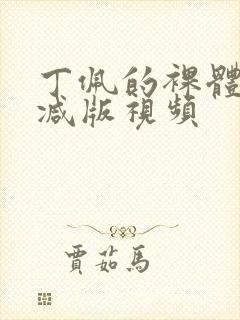 丁佩的裸體
减版視頻
賈茹馬